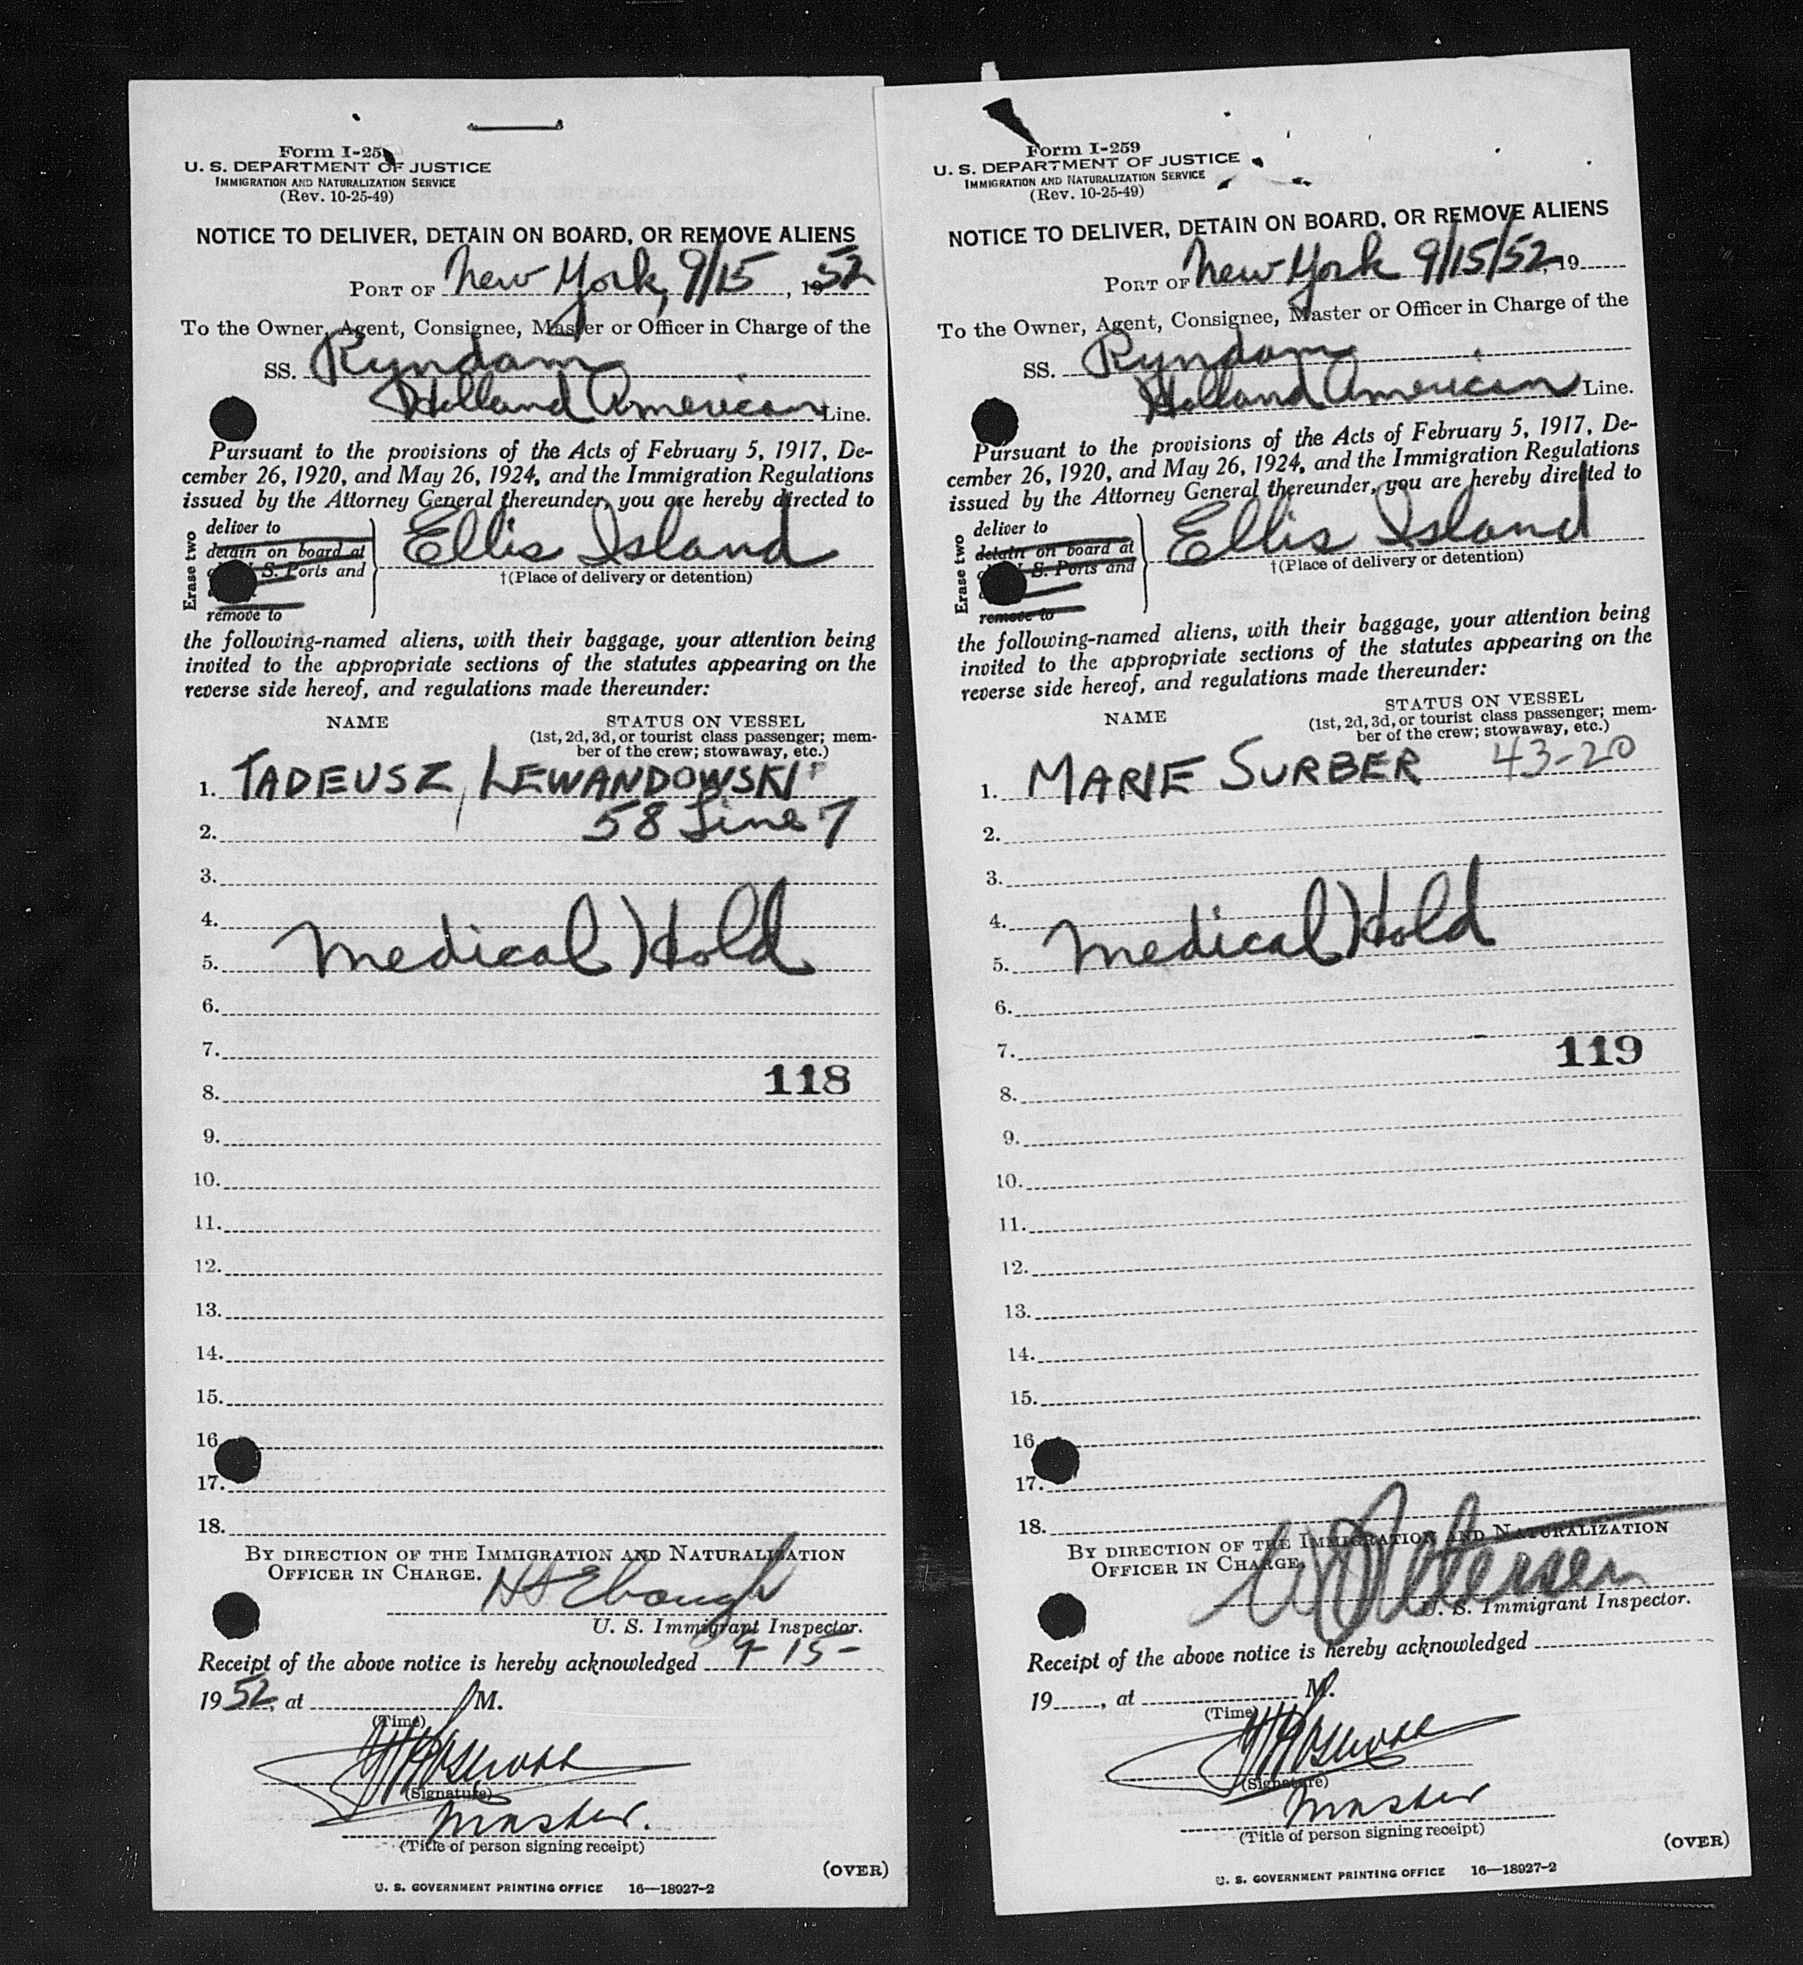 Form I-25
U. S. DEPARTMENT OF JUSTICE
IMMIGRATION AND NATURALIZATION SERVICE
(Rev. 10-25-49)
NOTICE TO DELIVER, DETAIN ON BOARD, OR REMOVE ALIENS
PORT OF New York, 9/15, 1952
To the Owner, Agent, Consignee, Master or Officer in Charge of the
SS. Ryndam
Holland American Line.
Pursuant to the provisions of the Acts of February 5, 1917, De-
cember 26, 1920, and May 26, 1924, and the Immigration Regulations
issued by the Attorney General thereunder, you are hereby directed to
Erase two
deliver to
detain on board at
S. Ports and
remove to
Ellis Island
†(Place of delivery or detention)
the following-named aliens, with their baggage, your attention being
invited to the appropriate sections of the statutes appearing on the
reverse side hereof, and regulations made thereunder:
NAME STATUS ON VESSEL
(1st, 2d, 3d, or tourist class passenger; mem-
ber of the crew; stowaway, etc.)
1. TADEUSZ, LEWANDOWSKI
2. 58 Line 7
3.
4.
5. Medical Hold
6.
7.
8. 118
9.
10.
11.
12.
13.
14.
15.
16
17.
18.
BY DIRECTION OF THE IMMIGRATION AND NATURALIZATION
OFFICER IN CHARGE.
H Ebaugh
U. S. Immigrant Inspector.
Receipt of the above notice is hereby acknowledged 9-15-
1952, at M.
(Time)
(Signature)
Master.
(Title of person signing receipt)
(OVER)
U. S. GOVERNMENT PRINTING OFFICE 16—18927-2
Form I-259
U. S. DEPARTMENT OF JUSTICE
IMMIGRATION AND NATURALIZATION SERVICE
(Rev. 10-25-49)
NOTICE TO DELIVER, DETAIN ON BOARD, OR REMOVE ALIENS
PORT OF New York 9/15/52, 19
To the Owner, Agent, Consignee, Master or Officer in Charge of the
SS. Ryndam
Holland American Line.
Pursuant to the provisions of the Acts of February 5, 1917, De-
cember 26, 1920, and May 26, 1924, and the Immigration Regulations
issued by the Attorney General thereunder, you are hereby directed to
Erase two
deliver to
detain on board at
S. Ports and
remove to
Ellis Island
†(Place of delivery or detention)
the following-named aliens, with their baggage, your attention being
invited to the appropriate sections of the statutes appearing on the
reverse side hereof, and regulations made thereunder:
NAME STATUS ON VESSEL
(1st, 2d, 3d, or tourist class passenger; mem-
ber of the crew; stowaway, etc.)
1. MARIE SURBER 43-20
2.
3.
4.
5. Medical Hold
6.
7. 119
8.
9.
10.
11.
12.
13.
14.
15.
16
17.
18.
BY DIRECTION OF THE IMMIGRATION AND NATURALIZATION
OFFICER IN CHARGE.
U. S. Immigrant Inspector.
Receipt of the above notice is hereby acknowledged
19, at M.
(Time)
(Signature)
Master
(Title of person signing receipt)
(OVER)
U. S. GOVERNMENT PRINTING OFFICE 16—18927-2